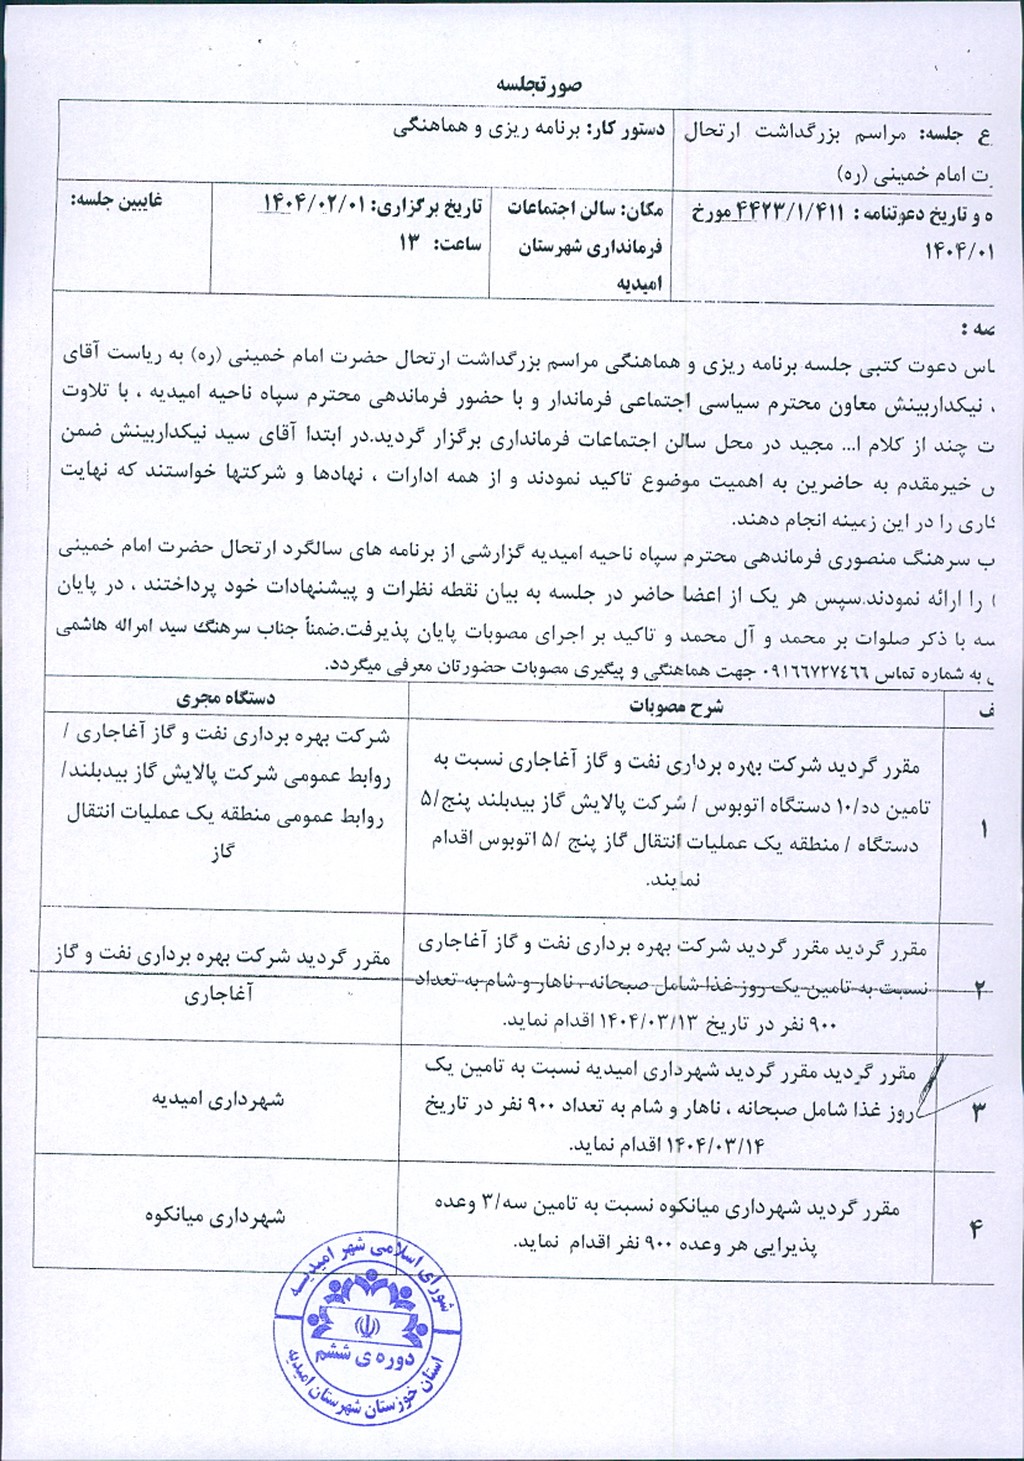 صورتجلسه
ع جلسه: مراسم بزرگداشت ارتحال
ت امام خمینی (ره)
دستور کار: برنامه ریزی و هماهنگی
ه و تاریخ دعوتنامه : ۴۴۲۳/۱/۴۱۱ مورخ
۱۴۰۴/۰۱
مکان: سالن اجتماعات
فرمانداری شهرستان
امیدیه
تاریخ برگزاری: ۱۴۰۴/۰۲/۰۱
ساعت: ۱۳
غایبین جلسه:
صه :
اس دعوت کتبی جلسه برنامه ریزی و هماهنگی مراسم بزرگداشت ارتحال حضرت امام خمینی (ره) به ریاست آقای
، نیکداربینش معاون محترم سیاسی اجتماعی فرماندار و با حضور فرماندهی محترم سپاه ناحیه امیدیه ، با تلاوت
ت چند از کلام ا... مجید در محل سالن اجتماعات فرمانداری برگزار گردید.در ابتدا آقای سید نیکداربینش ضمن
ض خیرمقدم به حاضرین به اهمیت موضوع تاکید نمودند و از همه ادارات ، نهادها و شرکتها خواستند که نهایت
کاری را در این زمینه انجام دهند.
ب سرهنگ منصوری فرماندهی محترم سپاه ناحیه امیدیه گزارشی از برنامه های سالگرد ارتحال حضرت امام خمینی
) را ارائه نمودند.سپس هر یک از اعضا حاضر در جلسه به بیان نقطه نظرات و پیشنهادات خود پرداختند ، در پایان
سه با ذکر صلوات بر محمد و آل محمد و تاکید بر اجرای مصوبات پایان پذیرفت.ضمناً جناب سرهنگ سید امراله هاشمی
به شماره تماس ۰۹۱۶۶۷۲۷۴۶۶ جهت هماهنگی و پیگیری مصوبات حضورتان معرفی میگردد.
ف
شرح مصوبات
دستگاه مجری
۱
مقرر گردید شرکت بهره برداری نفت و گاز آغاجاری نسبت به
تامین ده/۱۰ دستگاه اتوبوس / شرکت پالایش گاز بیدبلند پنج/۵
دستگاه / منطقه یک عملیات انتقال گاز پنج /۵ اتوبوس اقدام
نمایند.
شرکت بهره برداری نفت و گاز آغاجاری /
روابط عمومی شرکت پالایش گاز بیدبلند/
روابط عمومی منطقه یک عملیات انتقال
گاز
۲
مقرر گردید مقرر گردید شرکت بهره برداری نفت و گاز آغاجاری
نسبت به تامین یک روز غذا شامل صبحانه ، ناهار و شام به تعداد
۹۰۰ نفر در تاریخ ۱۴۰۴/۰۳/۱۳ اقدام نماید.
مقرر گردید شرکت بهره برداری نفت و گاز
آغاجاری
۳
مقرر گردید مقرر گردید شهرداری امیدیه نسبت به تامین یک
روز غذا شامل صبحانه ، ناهار و شام به تعداد ۹۰۰ نفر در تاریخ
۱۴۰۴/۰۳/۱۴ اقدام نماید.
شهرداری امیدیه
۴
مقرر گردید شهرداری میانکوه نسبت به تامین سه/۳ وعده
پذیرایی هر وعده ۹۰۰ نفر اقدام نماید.
شهرداری میانکوه
شورای اسلامی شهر امیدیه
دوره ی ششم
استان خوزستان شهرستان امیدیه